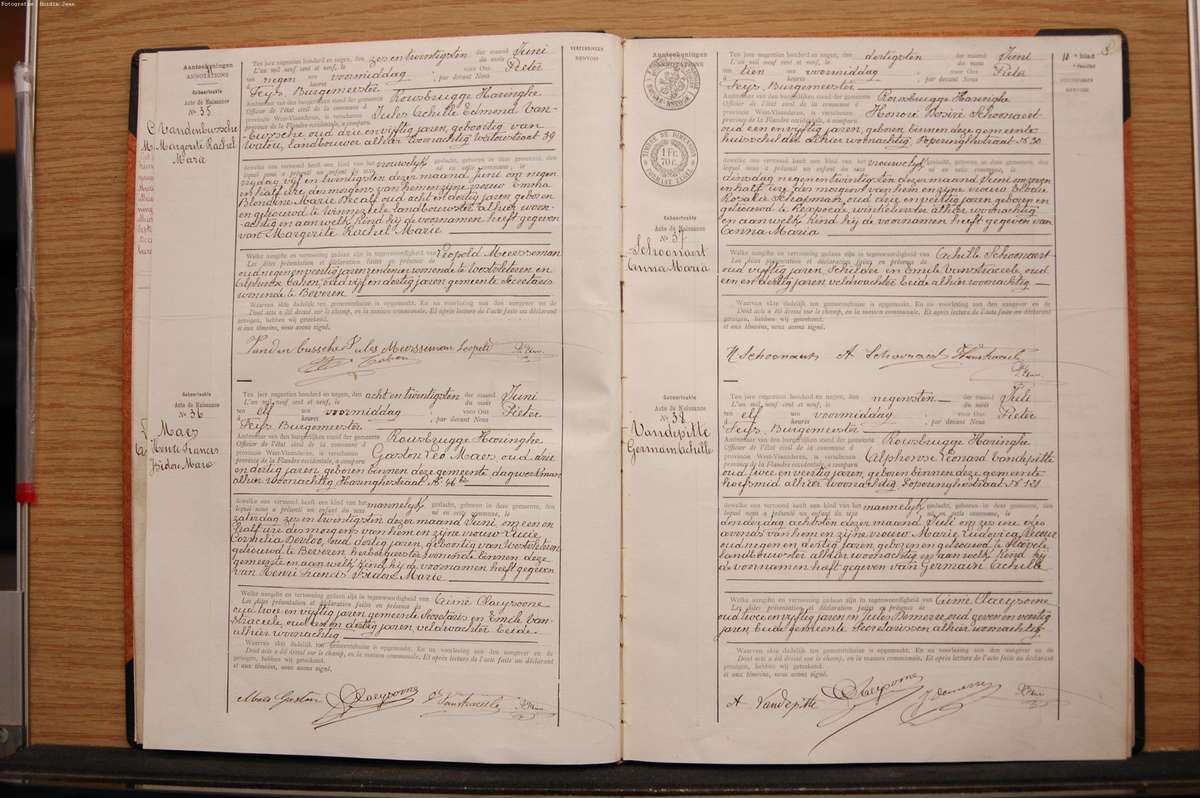 Fotografie : Houdin Jean
Aanteekeningen
ANNOTATIONS
VERZENDINGEN
RENVOIS
Geboorteakte
Acte de Naissance
№ 35
Vandenbussche
Margerite Rachel
Marie
Ten jare negentien honderd en negen, den zes en twintigsten der maand Juni
L'an mil neuf cent et neuf, le du mois
ten negen ure voormiddag voor Ons Pieter
à heures , par devant Nous
Feys, Burgemeester
Ambtenaar van den burgerlijken stand der gemeente Rousbrugge Haringhe
Officier de l'état civil de la commune d
provincie West-Vlaanderen, is verschenen Jules Achille Edmond Van-
province de la Flandre occidentale, a comparu
bussche oud drie en vijftig jaren, geboortig van
Watou, landbouwer alhier woonachtig Watoustraat 39
dewelke ons vertoond heeft een kind van het vrouwelijk geslacht, geboren in deze gemeente, den
lequel nous a présenté un enfant du sexe né en cette commune, le
vrijdag vijf en twintigsten dezer maand Juni om negen
en half ure des morgens van hem en zijne vrouw Emma
Blondine Marie Decalf oud acht en dertig jaren geboren
en getrouwd te Winnezeele landbouwster alhier woon-
achtig en aan welk kind hij de voornamen heeft gegeven
van Margerite Rachel Marie
Welke aangifte en vertooning gedaan zijn in tegenwoordigheid van Leopold Meersseman
Les dites présentation et déclaration faites en présence de
oud negen en veertig jaren rentenier wonende te Westvleteren en
Alphonse Cahon, oud vijf en dertig jaren gemeente secretaris
wonende te Beveren
Waarvan akte dadelijk ten gemeentehuize is opgemaakt. En na voorlezing aan den aangever en de
Dont acte a été dressé sur le champ, en la maison communale. Et après lecture de l'acte faite au déclarant
getuigen, hebben wij geteekend.
et aux témoins, nous avons signé.
Vandenbussche Jules Meersseman Leopold
A Cahon
P. Feys
Geboorteakte
Acte de Naissance
№ 36
Maes
Henri Francis
Isidore Marie
Ten jare negentien honderd en negen, den acht en twintigsten der maand Juni
L'an mil neuf cent et neuf, le du mois
ten elf ure voormiddag voor Ons Pieter
à heures , par devant Nous
Feys Burgemeester
Ambtenaar van den burgerlijken stand der gemeente Rousbrugge Haringhe
Officier de l'état civil de la commune d
provincie West-Vlaanderen, is verschenen Gaston Leo Maes, oud drie
province de la Flandre occidentale, a comparu
en dertig jaren, geboren binnen deze gemeente dagwerkman
alhier woonachtig Haringhestraat № 46 bis
dewelke ons vertoond heeft een kind van het mannelijk geslacht, geboren in deze gemeente, den
lequel nous a présenté un enfant du sexe né en cette commune, le
zaterdag zes en twintigsten dezer maand Juni om een en
half ure des morgens van hem en zijne vrouw Lucie
Cornelia Devloo, oud dertig jaren, geboortig van Westvleteren
getrouwd te Beveren herbergierster wonende binnen deze
gemeente en aan welk kind hij de voornamen heeft gegeven
van Henri Francis Isidore Marie
Welke aangifte en vertooning gedaan zijn in tegenwoordigheid van Aimé Claeysoone
Les dites présentation et déclaration faites en présence de
oud twee en vijftig jaren gemeente Secretaris en Emile Van-
straceele, oud een en dertig jaren, veldwachter Beide
alhier woonachtig
Waarvan akte dadelijk ten gemeentehuize is opgemaakt. En na voorlezing aan den aangever en de
Dont acte a été dressé sur le champ, en la maison communale. Et après lecture de l'acte faite au déclarant
getuigen, hebben wij geteekend.
et aux témoins, nous avons signé.
Maes Gaston A Claeysoone E Vanstraceele P. Feys
Aanteekeningen
ANNOTATIONS
10e blad
feuillet
VERZENDINGEN
RENVOIS
TIMBRE DE DIMENSION
1 Fr.
70 c.
Geboorteakte
Acte de Naissance
№ 37
Schoonaert
Anna Maria
Ten jare negentien honderd en negen, den dertigsten der maand Juni
L'an mil neuf cent et neuf, le du mois
ten tien ure voormiddag voor Ons Pieter
à heures , par devant Nous
Feys, Burgemeester
Ambtenaar van den burgerlijken stand der gemeente Rousbrugge Haringhe
Officier de l'état civil de la commune d
provincie West-Vlaanderen, is verschenen Honoré Désiré Schoonaert
province de la Flandre occidentale, a comparu
oud een en vijftig jaren, geboren binnen deze gemeente
huisschilder alhier woonachtig, Poperinghestraat № 30
dewelke ons vertoond heeft een kind van het vrouwelijk geslacht, geboren in deze gemeente, den
lequel nous a présenté un enfant du sexe né en cette commune, le
dinsdag negen en twintigsten dezer maand Juni om zeven
en half ure des morgens van hem en zijne vrouw Elodie
Rosalie Schapman oud drie en veertig jaren geboren en
getrouwd te Krapeca, winkelierster alhier woonachtig
en aan welk kind hij de voornamen heeft gegeven van
Anna Maria
Welke aangifte en vertooning gedaan zijn in tegenwoordigheid van Achille Schoonaert
Les dites présentation et déclaration faites en présence de
oud vijftig jaren, Schilder en Emile Vanstraceele, oud
een en dertig jaren veldwachter Beide alhier woonachtig
Waarvan akte dadelijk ten gemeentehuize is opgemaakt. En na voorlezing aan den aangever en de
Dont acte a été dressé sur le champ, en la maison communale. Et après lecture de l'acte faite au déclarant
getuigen, hebben wij geteekend.
et aux témoins, nous avons signé.
H Schoonaert A Schoonaert E Vanstraceele
P. Feys
Geboorteakte
Acte de Naissance
№ 38
Vandepitte
Germain Achille
Ten jare negentien honderd en negen, den negensten der maand Juli
L'an mil neuf cent et neuf, le du mois
ten elf ure voormiddag voor Ons Pieter
à heures , par devant Nous
Feys Burgemeester
Ambtenaar van den burgerlijken stand der gemeente Rousbrugge Haringhe
Officier de l'état civil de la commune d
provincie West-Vlaanderen, is verschenen Alphonse Léonard Vandepitte
province de la Flandre occidentale, a comparu
oud twee en veertig jaren, geboren binnen deze gemeente
hoefsmid alhier woonachtig Poperinghestraat № 121
dewelke ons vertoond heeft een kind van het mannelijk geslacht, geboren in deze gemeente, den
lequel nous a présenté un enfant du sexe né en cette commune, le
donderdag achtsten dezer maand Juli om zes ure des
avonds van hem en zijne vrouw Marie Ludovica
oud negen en dertig jaren, geboren en getrouwd te Stavele
landbouwster alhier woonachtig en aan welk kind hij
de voornamen heeft gegeven van Germain Achille
Welke aangifte en vertooning gedaan zijn in tegenwoordigheid van Aimé Claeysoone
Les dites présentation et déclaration faites en présence de
oud twee en vijftig jaren en Jules Demerre, oud zeven en veertig
jaren, beide gemeente secretarissen alhier woonachtig
Waarvan akte dadelijk ten gemeentehuize is opgemaakt. En na voorlezing aan den aangever en de
Dont acte a été dressé sur le champ, en la maison communale. Et après lecture de l'acte faite au déclarant
getuigen, hebben wij geteekend.
et aux témoins, nous avons signé.
A Vandepitte A Claeysoone J Demerre P. Feys